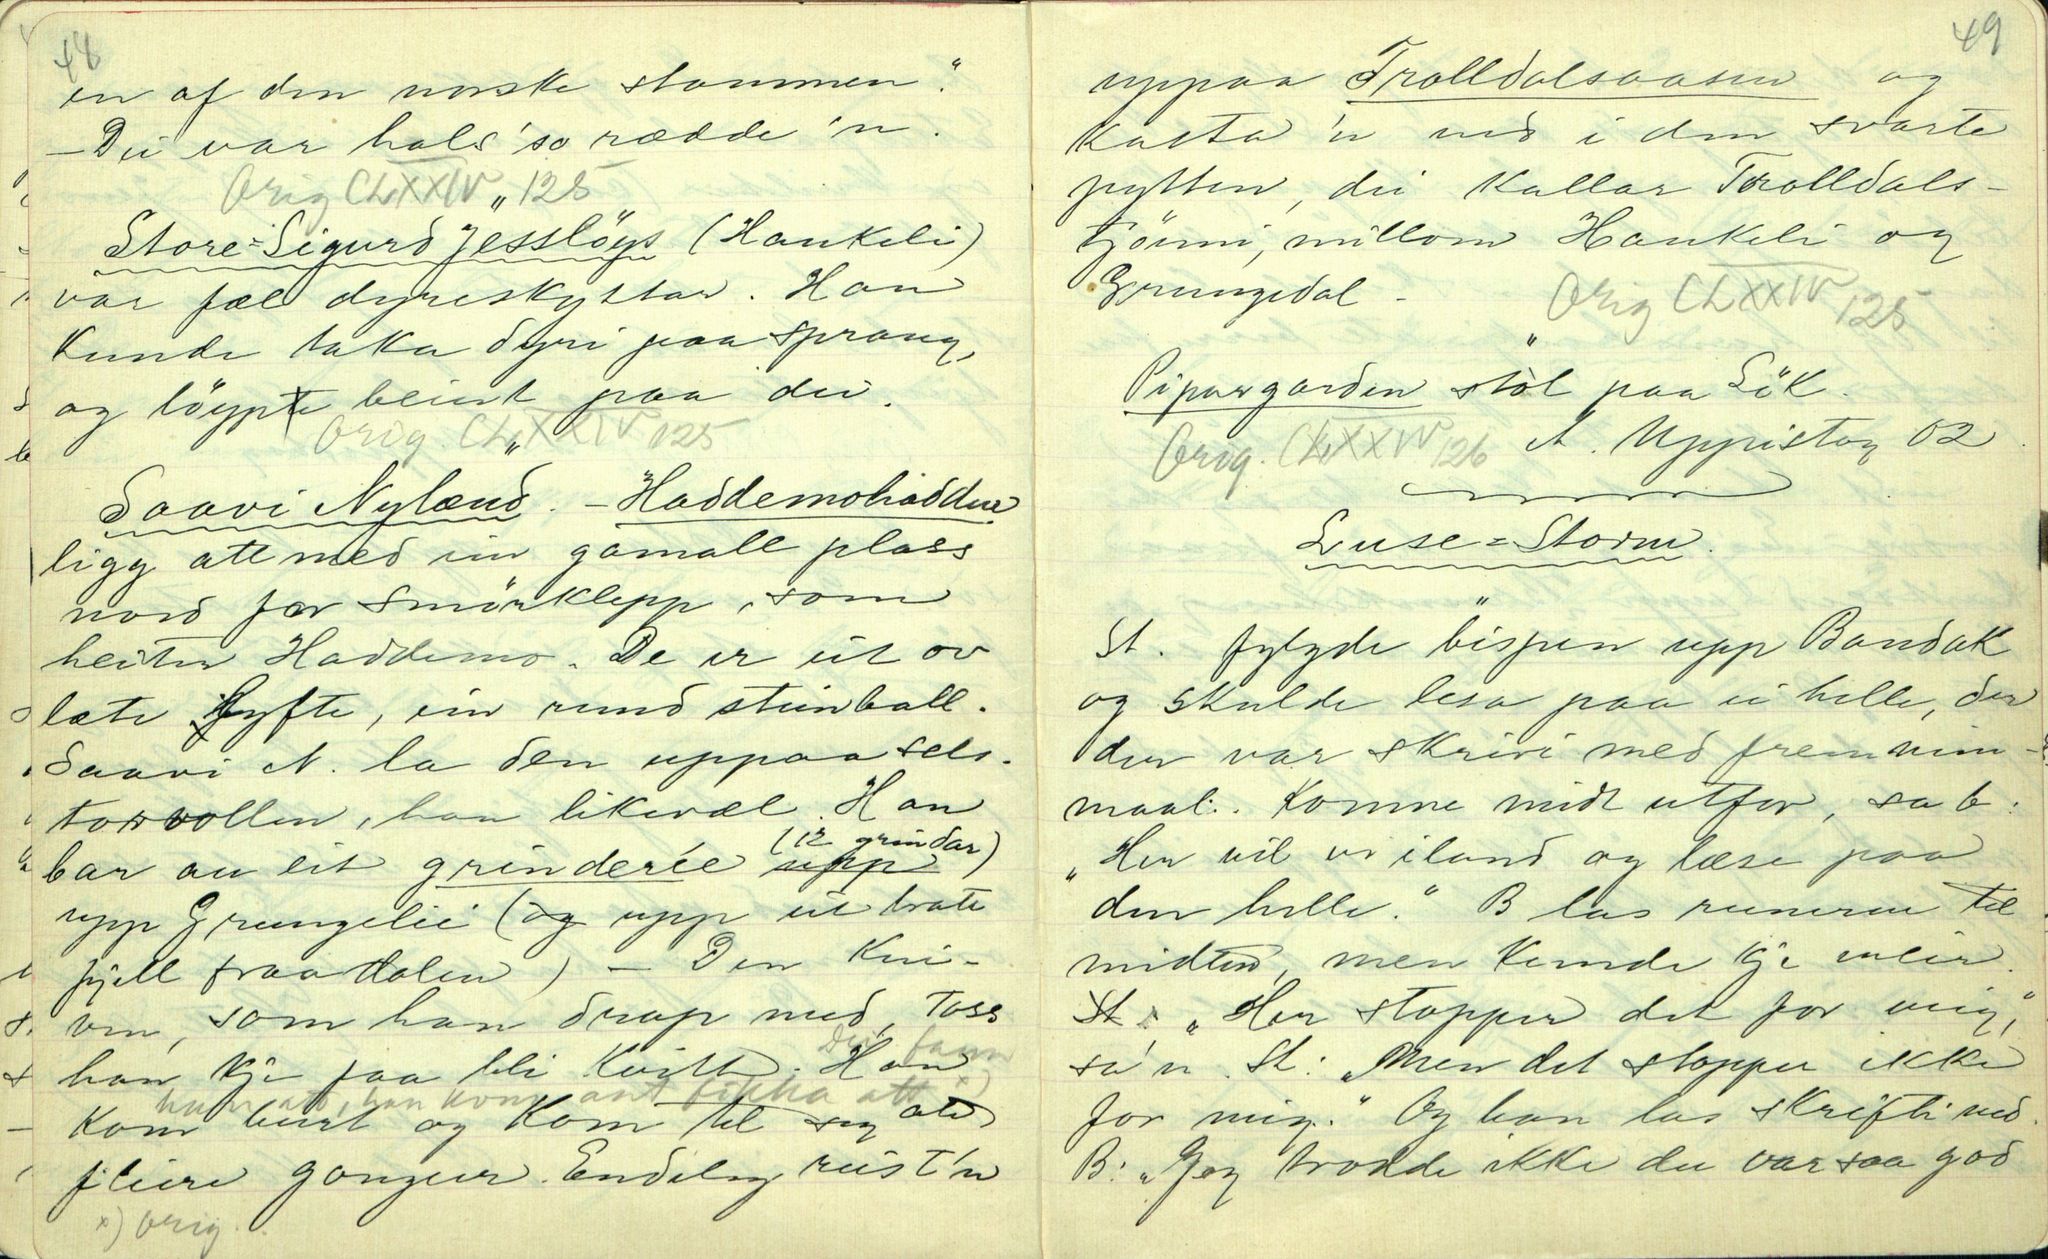 48
en af den norske stammen."
– Dei var hals 'so rædde 'n.
Orig CLXXIV 125
"
Store-Sigurd Jesslöys (Haukeli)
var fæl dyreskyttar. Han
kunde taka dyri paa sprang,
og löypte beint paa dei.
Orig. CLXXIV 125
"
Saavi Nylænd. – Haddemohadden
ligg att med ein gamall plass
nord fær Smörklepp, som
heiter Haddemo. De er eit ov
læte Lyfte, ein rund steinball.
Saavi N. la den uppaa sels-
torvollen, han likevæl. Han
bar au eit grinderée upp (12 grindar)
upp Grungelii (og upp eit brate
fjell fraa dalen) – Den kni-
ven, som han drap med, toss
han kje faa bli kvitt. Han
Dei fann
han att, han kom ant fikka att x)
kom burt og kom til seg att
fleire gonger. Endeleg reist 'n
x) Orig.
49
uppaa Trolldalsaasen og
kasta 'n ned i den svarte
pytten, dei kallar Trolldals-
tjönni, millom Haukeli og
Grungedal –
Orig CLXXIV 125
"
Pipargarden stöl paa Lök.
Orig. CLXXIV 126 A. Uppistog 02.
Luse-Storm.
"
St. fylgde bispen upp Bandak
og skulde lesa paa ei helle, der
der var skrivi med fremmim-
maal. Komne midt utfor, sa b:
„Her vil vi iland og læse paa
den helle." B las runerne til
midten, men kunde kje meir.
St: „Her stopper det for mig,"
sa'n. St: „Men det stopper ikke
for mig." Og han las skrifti ned.
B: „Jeg trodde ikke du var saa god